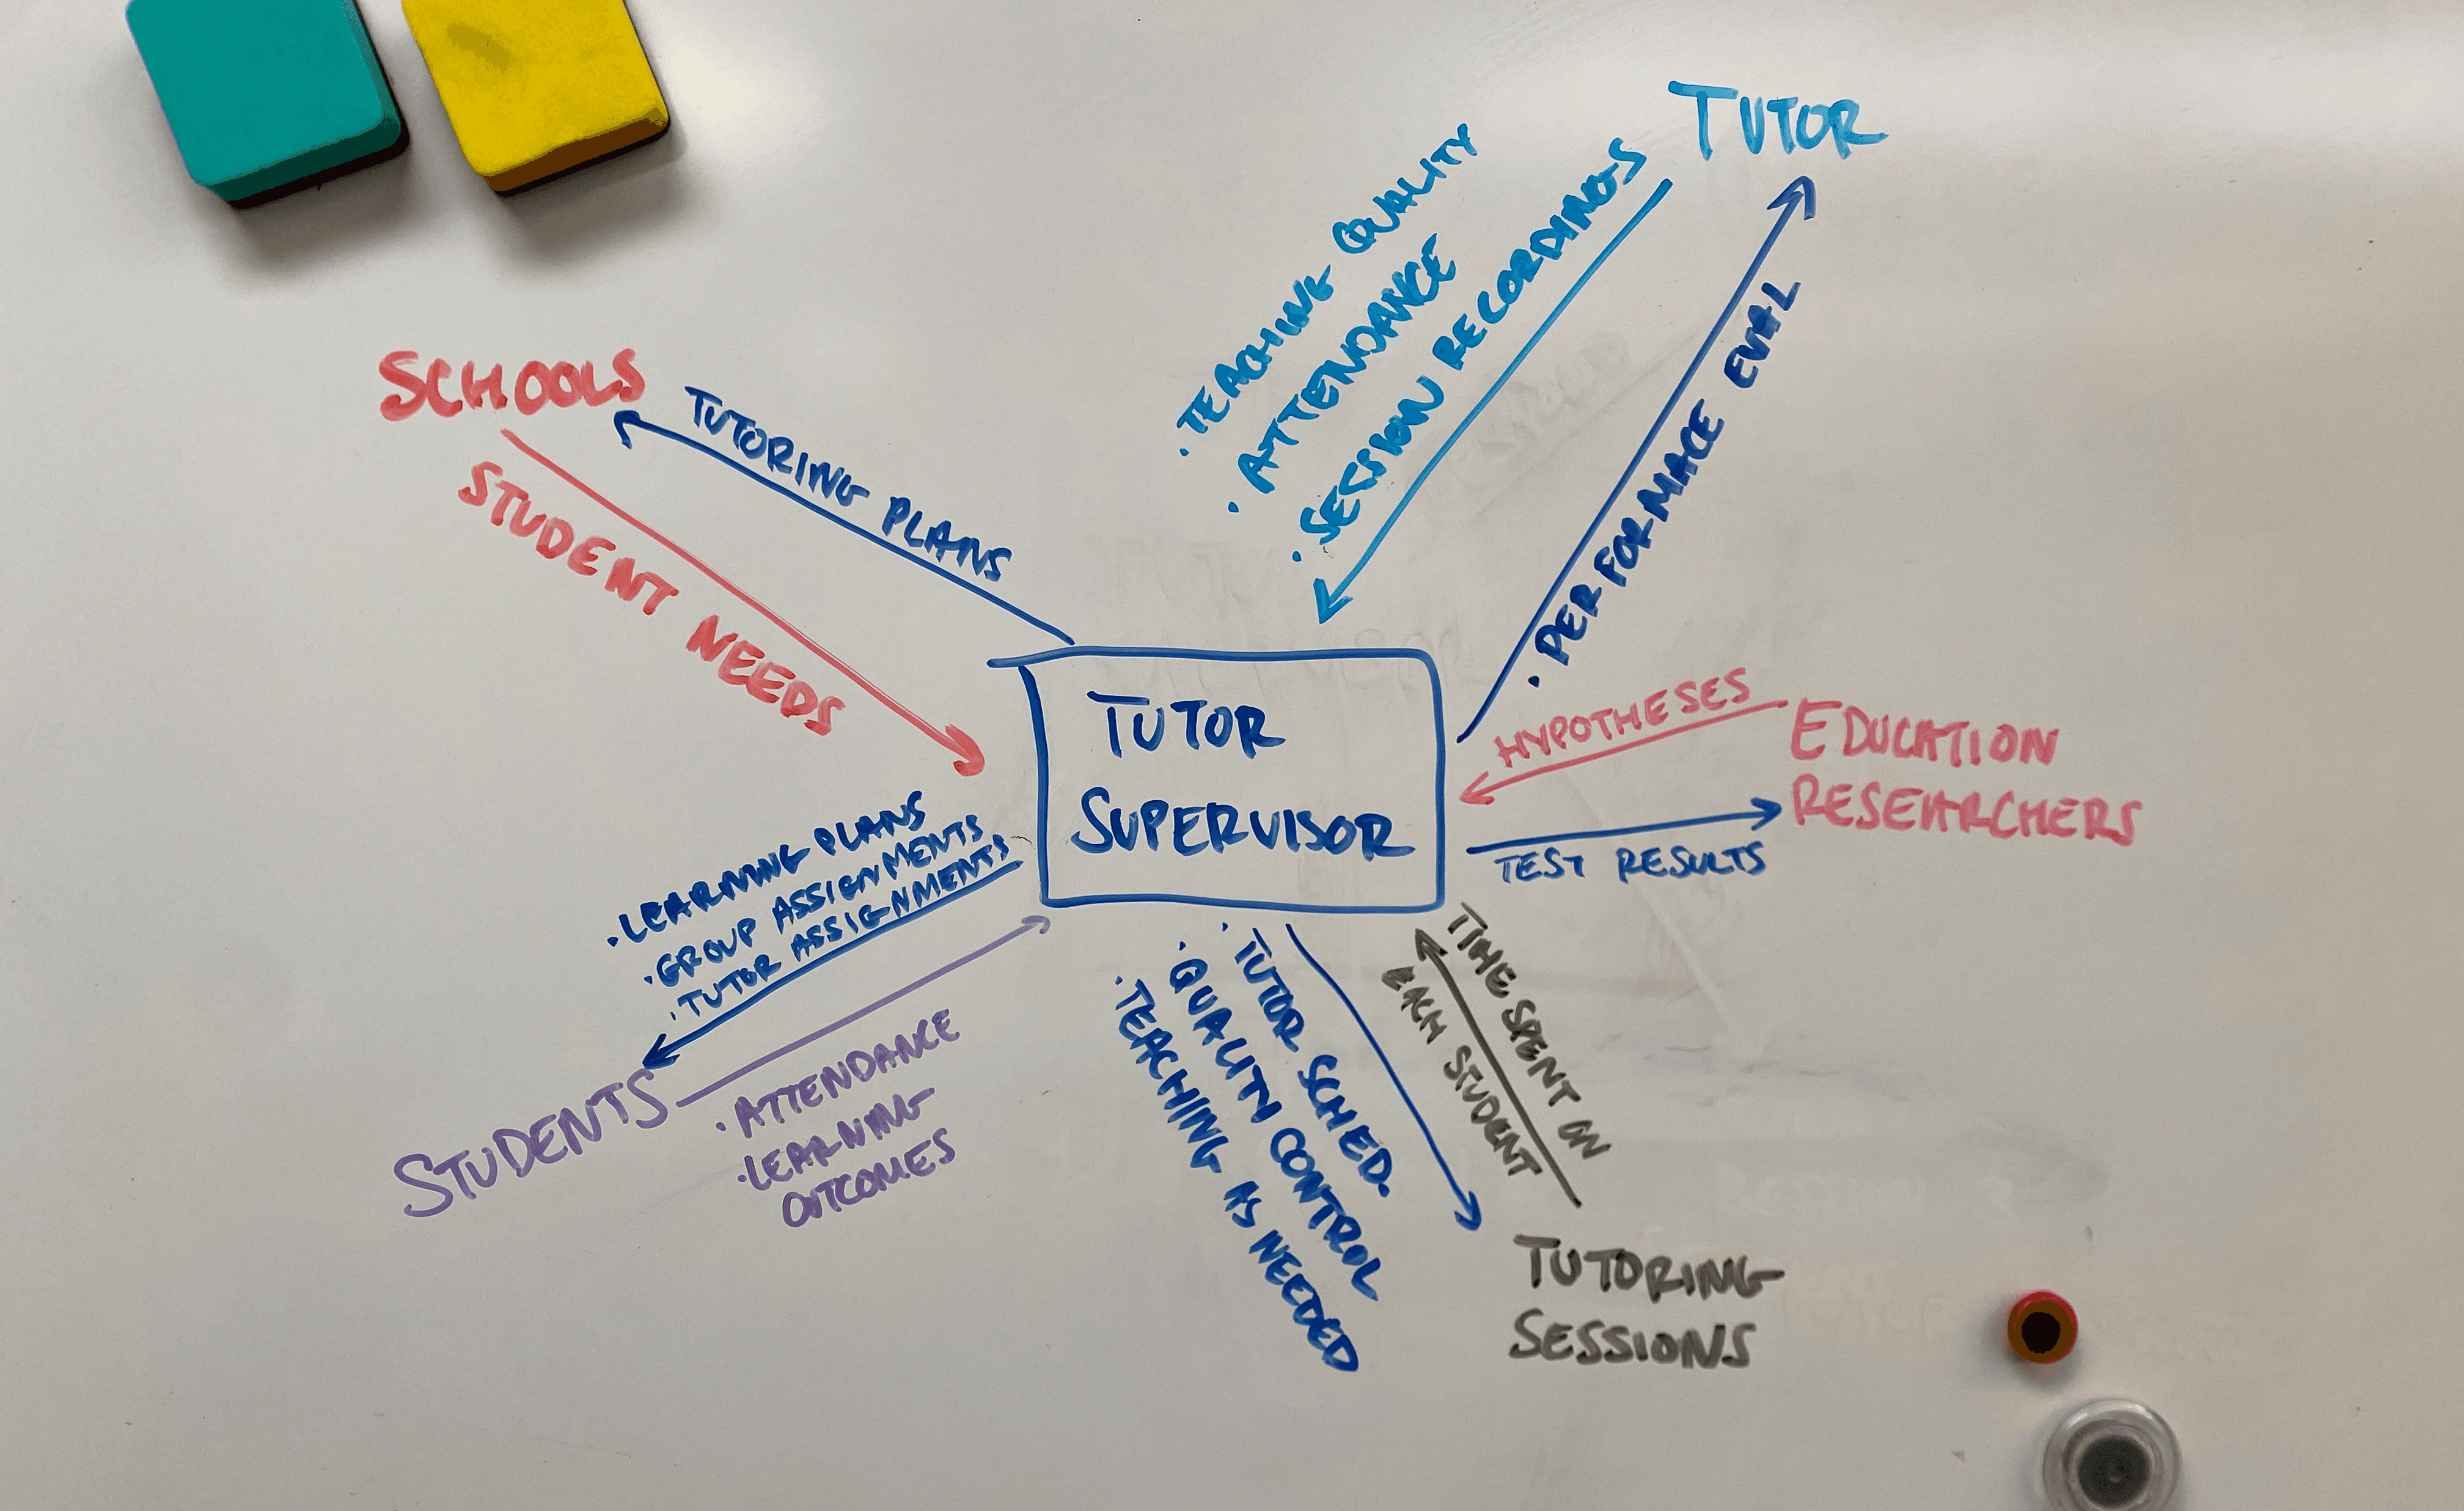 TUTOR
• TEACHING QUALITY
• ATTENDANCE
• SESSION RECORDINGS
• PERFORMACE EVAL
SCHOOLS
TUTORING PLANS
STUDENT NEEDS
TUTOR
SUPERVISOR
HYPOTHESES
EDUCATION
RESEARCHERS
TEST RESULTS
• LEARNING PLANS
• GROUP ASSIGNMENTS
• TUTOR ASSIGNMENTS
STUDENTS
• ATTENDANCE
• LEARNING
OUTCOMES
• TUTOR SCHED.
• QUALITY CONTROL
• TEACHING AS NEEDED
TIME SPENT ON
EACH STUDENT
TUTORING
SESSIONS